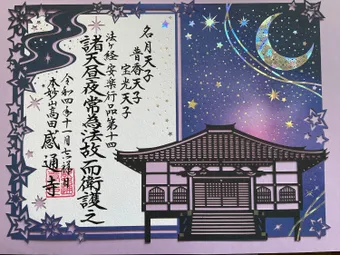 名月天子
普香天子
宝光天子
法華経 安楽行品第十四
諸天昼夜常為法故而衛護之
令和四年十一月吉祥日
本妙山高田
感通寺